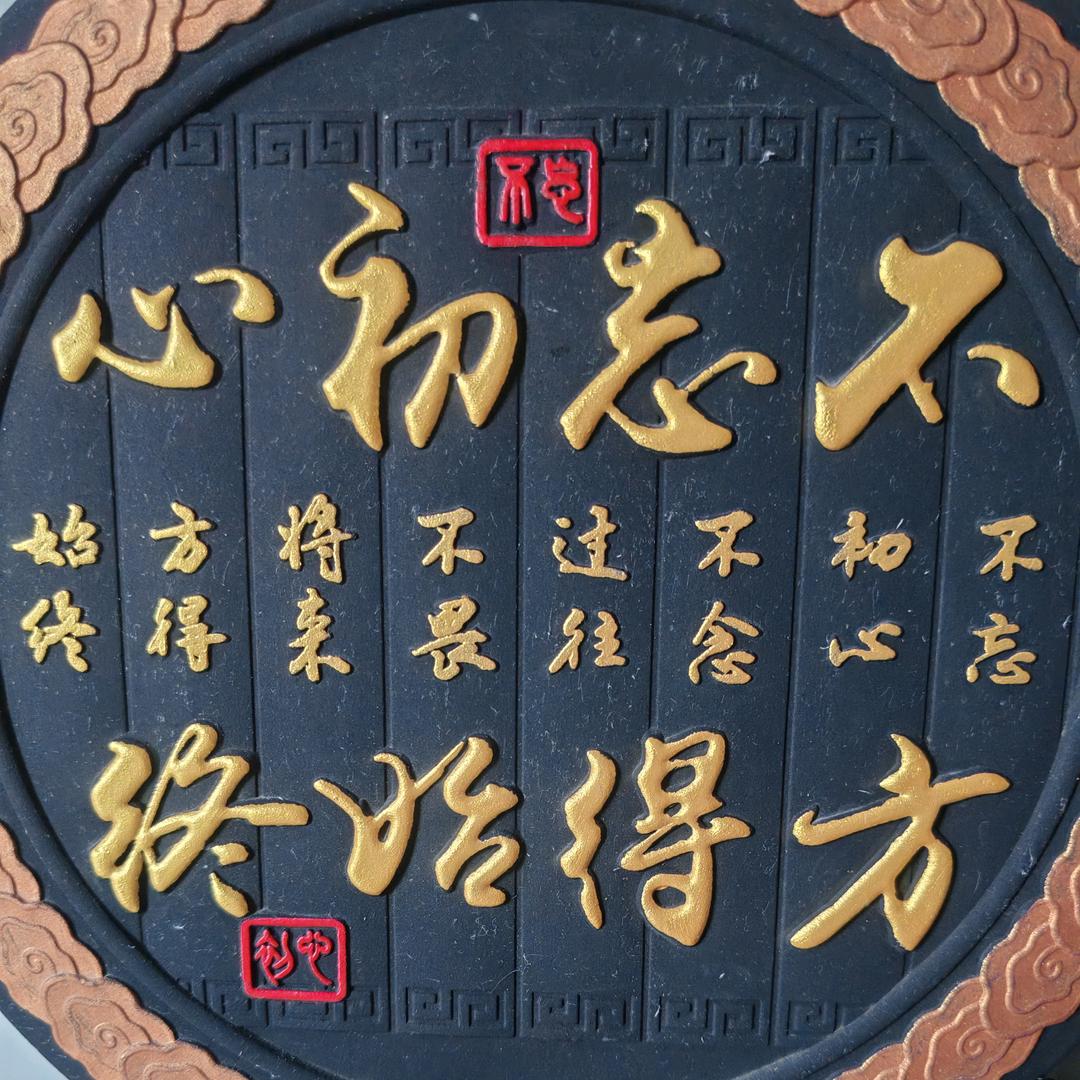 不忘
不忘初心
不忘
初心
不念
过往
不畏
将来
方得
始终
方得始终
初心